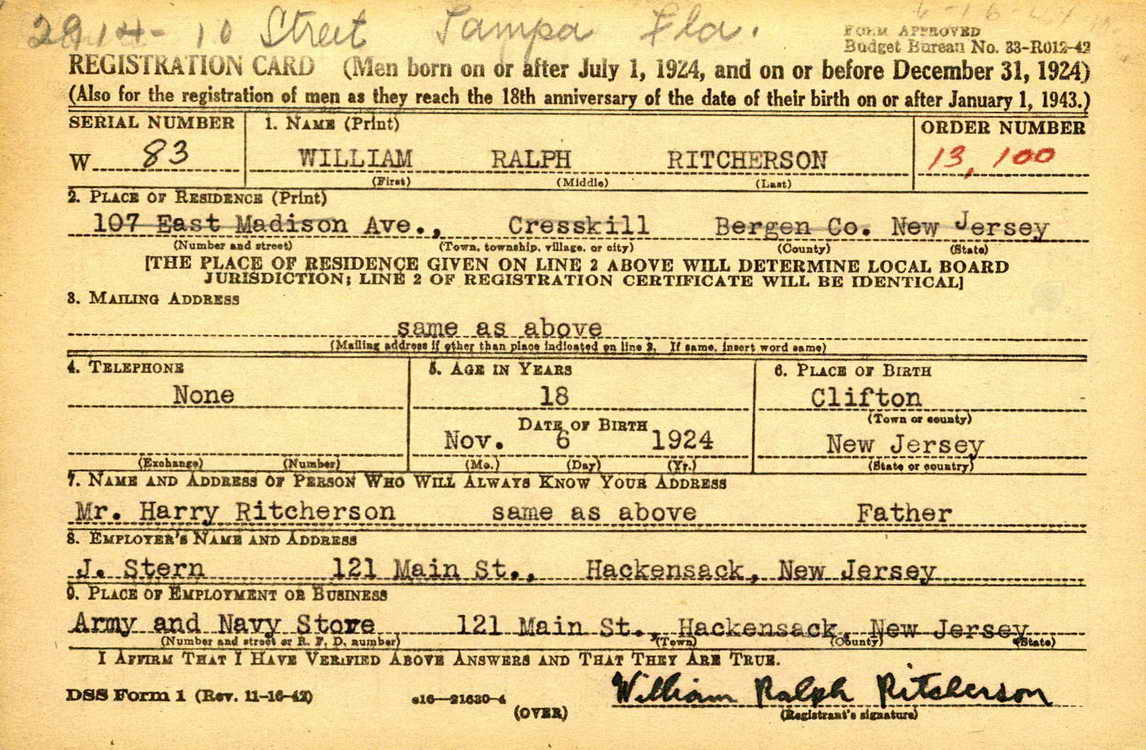 2914 - 10 Street Tampa Fla.
FORM APPROVED
Budget Bureau No. 33-R012-42
REGISTRATION CARD (Men born on or after July 1, 1924, and on or before December 31, 1924)
(Also for the registration of men as they reach the 18th anniversary of the date of their birth on or after January 1, 1943.)
SERIAL NUMBER 1. NAME (Print) ORDER NUMBER
W 83 WILLIAM RALPH RITCHERSON 13,100
(First) (Middle) (Last)
2. PLACE OF RESIDENCE (Print)
107 East Madison Ave., Cresskill Bergen Co. New Jersey
(Number and street) (Town, township, village, or city) (County) (State)
[THE PLACE OF RESIDENCE GIVEN ON LINE 2 ABOVE WILL DETERMINE LOCAL BOARD
JURISDICTION; LINE 2 OF REGISTRATION CERTIFICATE WILL BE IDENTICAL]
3. MAILING ADDRESS
same as above
(Mailing address if other than place indicated on line 2. If same, insert word same)
4. TELEPHONE 5. AGE IN YEARS 6. PLACE OF BIRTH
None 18 Clifton
(Town or county)
DATE OF BIRTH
Nov. 6 1924 New Jersey
(Exchange) (Number) (Mo.) (Day) (Yr.) (State or country)
7. NAME AND ADDRESS OF PERSON WHO WILL ALWAYS KNOW YOUR ADDRESS
Mr. Harry Ritcherson same as above Father
8. EMPLOYER'S NAME AND ADDRESS
J. Stern 121 Main St., Hackensack, New Jersey
9. PLACE OF EMPLOYMENT OR BUSINESS
Army and Navy Store 121 Main St., Hackensack, New Jersey
(Number and street or R. F. D. number) (Town) (County) (State)
I AFFIRM THAT I HAVE VERIFIED ABOVE ANSWERS AND THAT THEY ARE TRUE.
DSS Form 1 (Rev. 11-16-42) 16—21630-4 William Ralph Ritcherson
(OVER) (Registrant's signature)